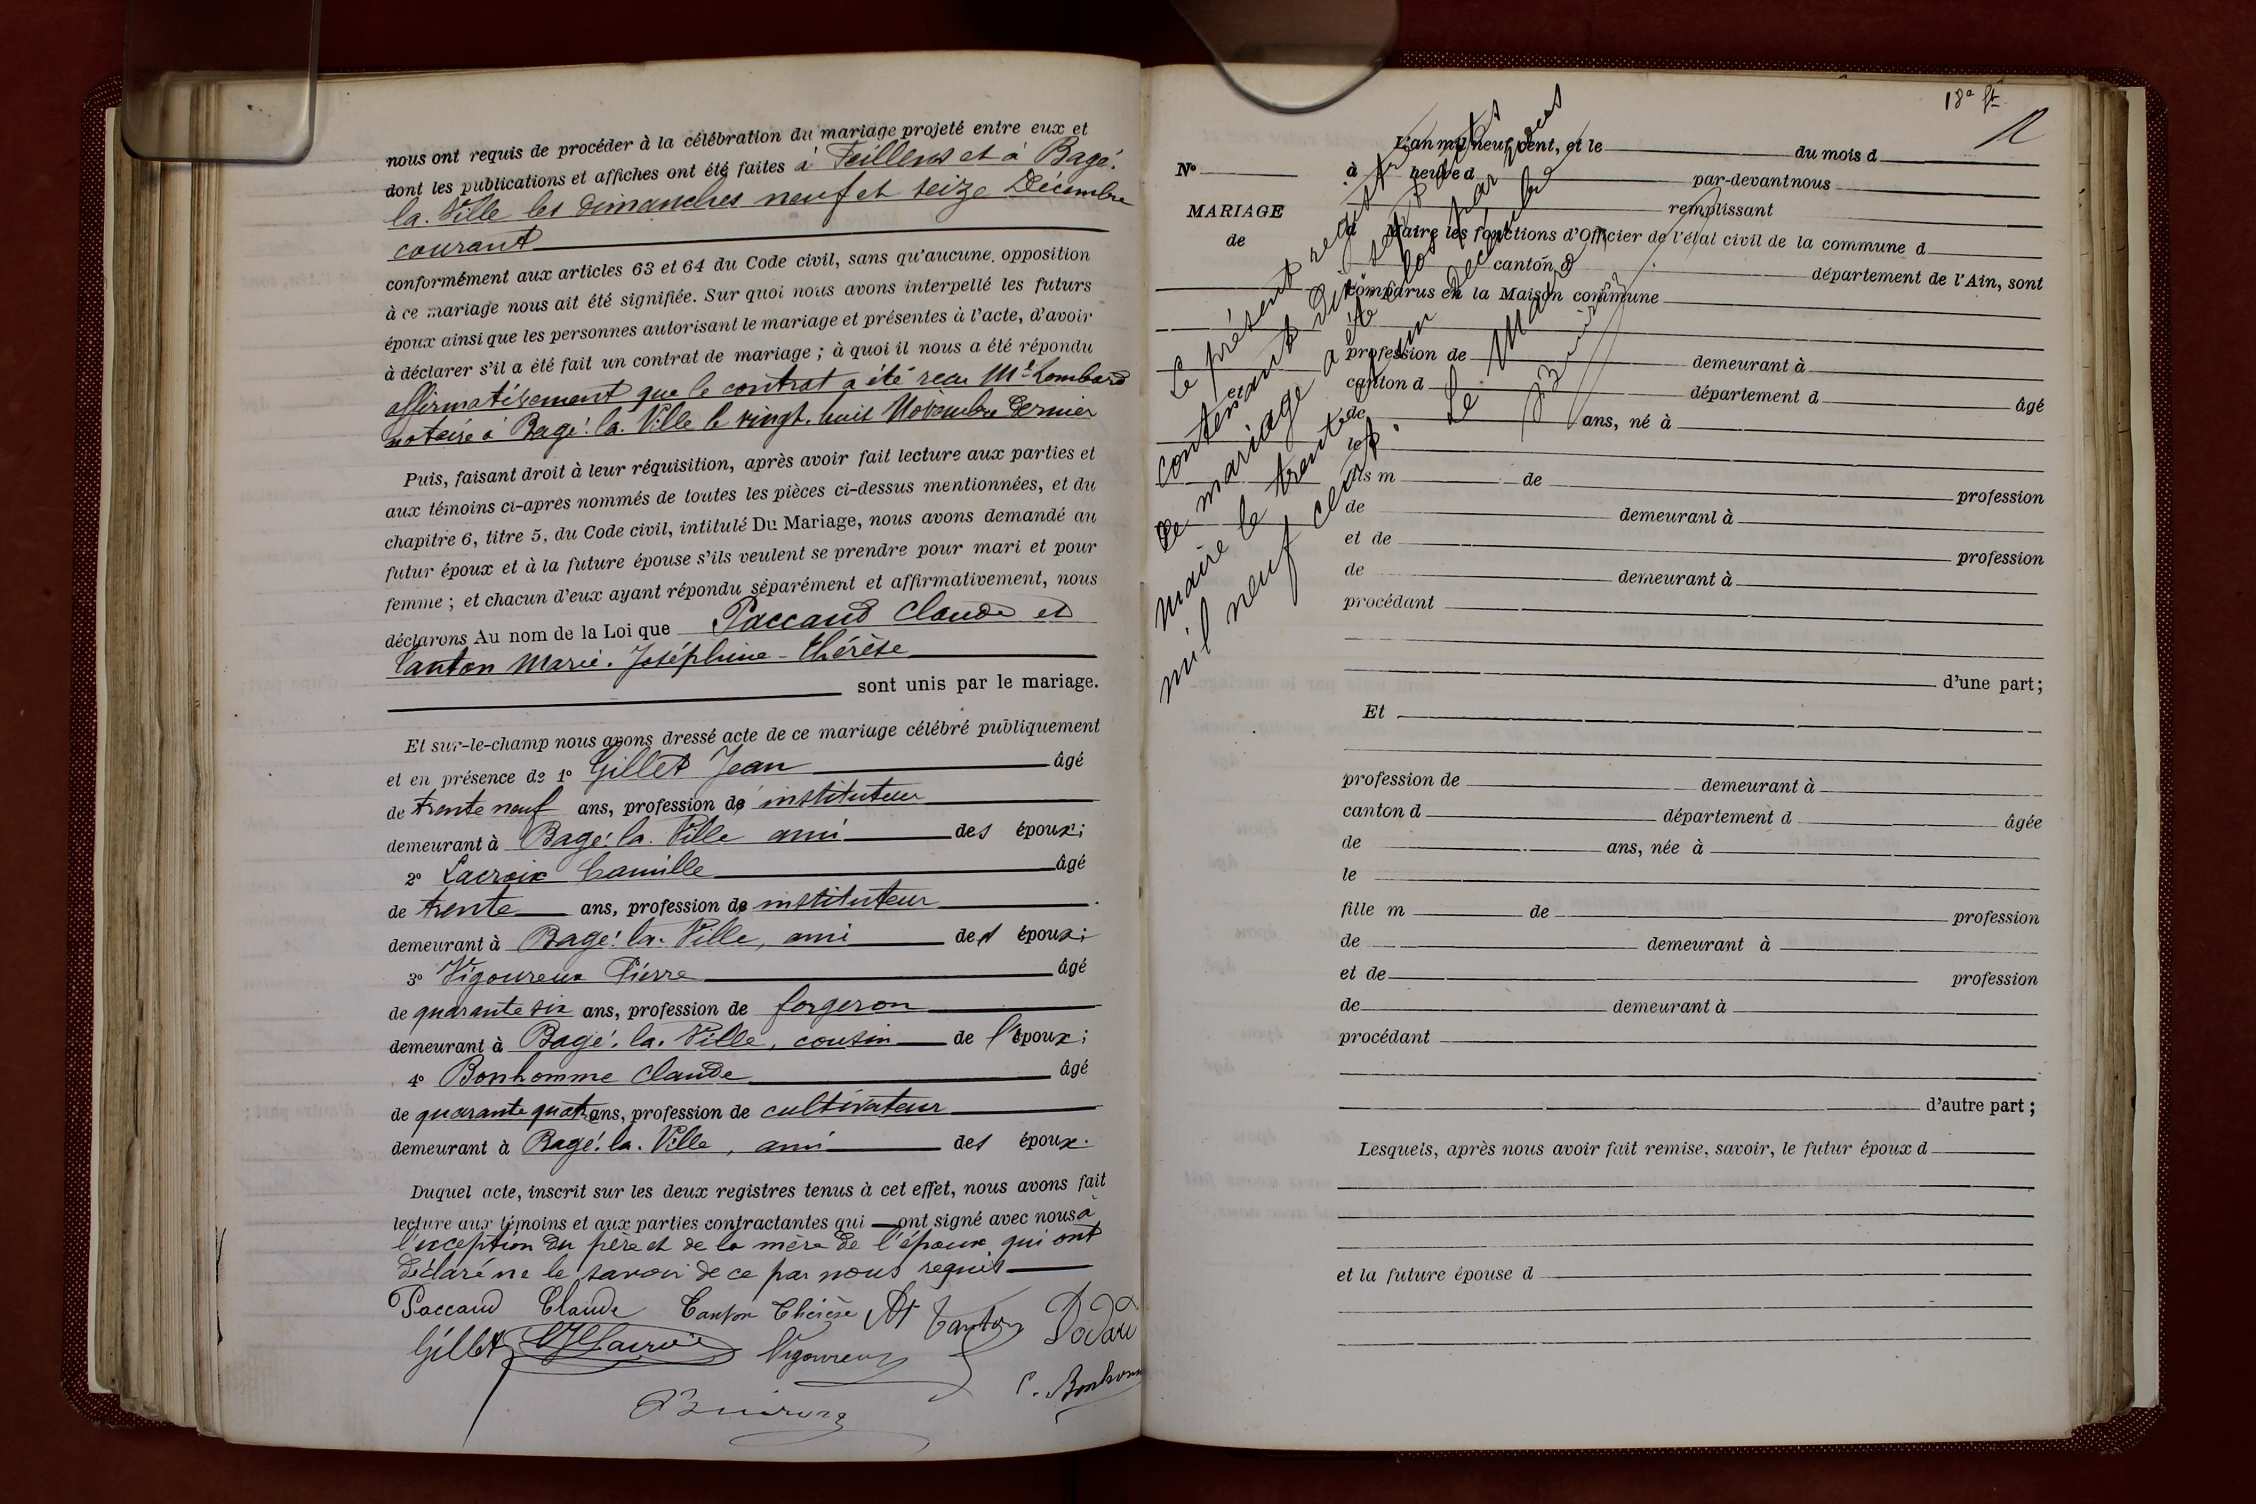 nous ont requis de procéder à la célébration du mariage projeté entre eux et
dont les publications et affiches ont été faites à Feillens et à Bagé-
la-Ville les dimanches neuf et seize Décembre
courant
conformément aux articles 63 et 64 du Code civil, sans qu'aucune opposition
à ce mariage nous ait été signifiée. Sur quoi nous avons interpellé les futurs
époux ainsi que les personnes autorisant le mariage et présentes à l'acte, d'avoir
à déclarer s'il a été fait un contrat de mariage ; à quoi il nous a été répondu
affirmativement que le contrat a été reçu Me Lombard
notaire à Bagé-la-Ville le vingt-huit Novembre dernier
Puis, faisant droit à leur réquisition, après avoir fait lecture aux parties et
aux témoins ci-après nommés de toutes les pièces ci-dessus mentionnées, et du
chapitre 6, titre 5, du Code civil, intitulé Du Mariage, nous avons demandé au
futur époux et à la future épouse s'ils veulent se prendre pour mari et pour
femme ; et chacun d'eux ayant répondu séparément et affirmativement, nous
déclarons Au nom de la Loi que Paccaud Claude et
Canton Marie-Joséphine-Thérèse
sont unis par le mariage.
Et sur-le-champ nous avons dressé acte de ce mariage célébré publiquement
et en présence de 1° Gillet Jean âgé
de trente neuf ans, profession de instituteur
demeurant à Bagé-la-Ville ami des époux ;
2° Lacroix Camille âgé
de trente ans, profession de instituteur
demeurant à Bagé-la-Ville, ami des époux ;
3° Vigoureux Pierre âgé
de quarante six ans, profession de forgeron
demeurant à Bagé-la-Ville, cousin de l'époux ;
4° Bonhomme Claude âgé
de quarante quatre ans, profession de cultivateur
demeurant à Bagé-la-Ville, ami des époux.
Duquel acte, inscrit sur les deux registres tenus à cet effet, nous avons fait
lecture aux témoins et aux parties contractantes qui ont signé avec nous à
l'exception du père et de la mère de l'époux qui ont
déclaré ne le savoir de ce par nous requis
Paccaud Claude Canton Thérèse Canton
Gillet Lacroix Vigoureux
C. Bonhomme
N°
MARIAGE
de
et
Le présent registre
contenant dix sept actes
de mariage a été clos par nous
maire le trente un décembre
mil neuf cent
Le Maire
L'an mil neuf cent, et le du mois d
à heure d par-devant nous
remplissant
Maire les fonctions d'Officier de l'état civil de la commune d
canton d département de l'Ain, sont
comparus en la Maison commune
profession de demeurant à
canton d département d âgé
de ans, né à
le
fils m de profession
de demeurant à
et de profession
de demeurant à
procédant
d'une part ;
Et
profession de demeurant à
canton d département d âgée
de ans, née à
le
fille m de profession
de demeurant à
et de profession
de demeurant à
procédant
d'autre part ;
Lesquels, après nous avoir fait remise, savoir, le futur époux d
et la future épouse d